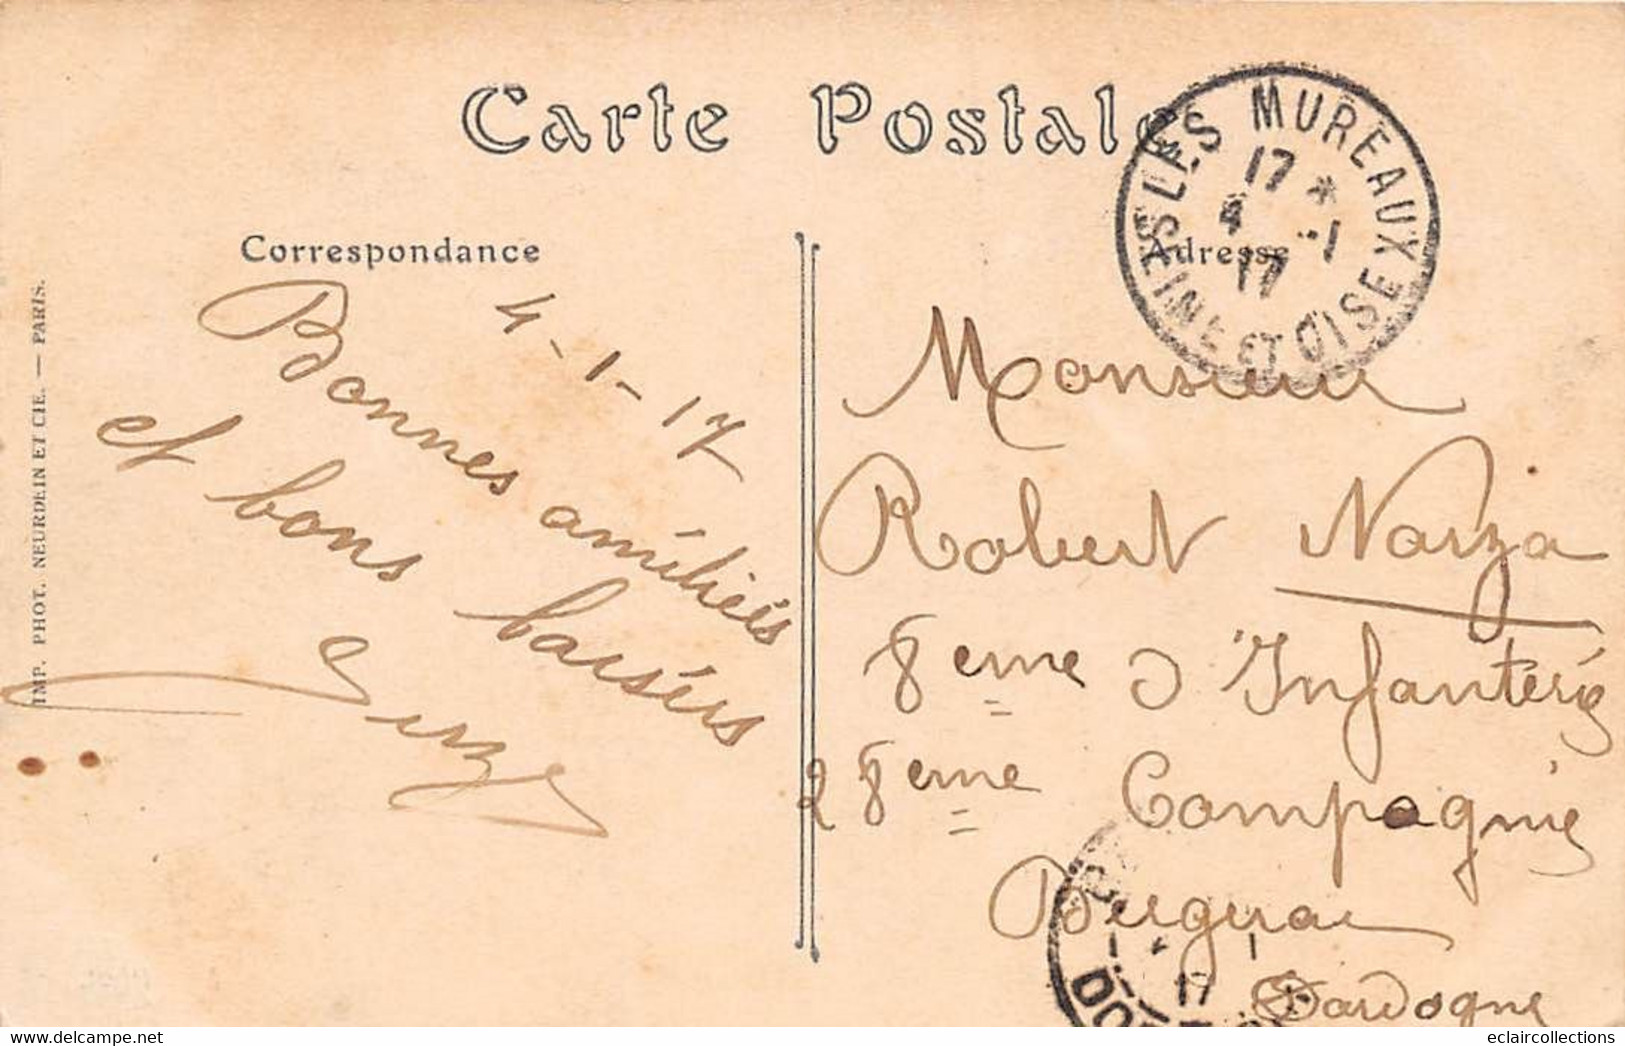 Carte Postale
LES MUREAUX
17 *
4 -1
17
SEINE ET OISE
Correspondance
Adresse
4-1-17
Bonnes amitiés
et bons baisers
Monsieur
Robert
8eme d'Infanterie
28eme Compagnie
Bergerac
Dordogne
17
IMP. PHOT. NEURDEIN ET CIE. — PARIS.
delcampe.net
eclaircollections